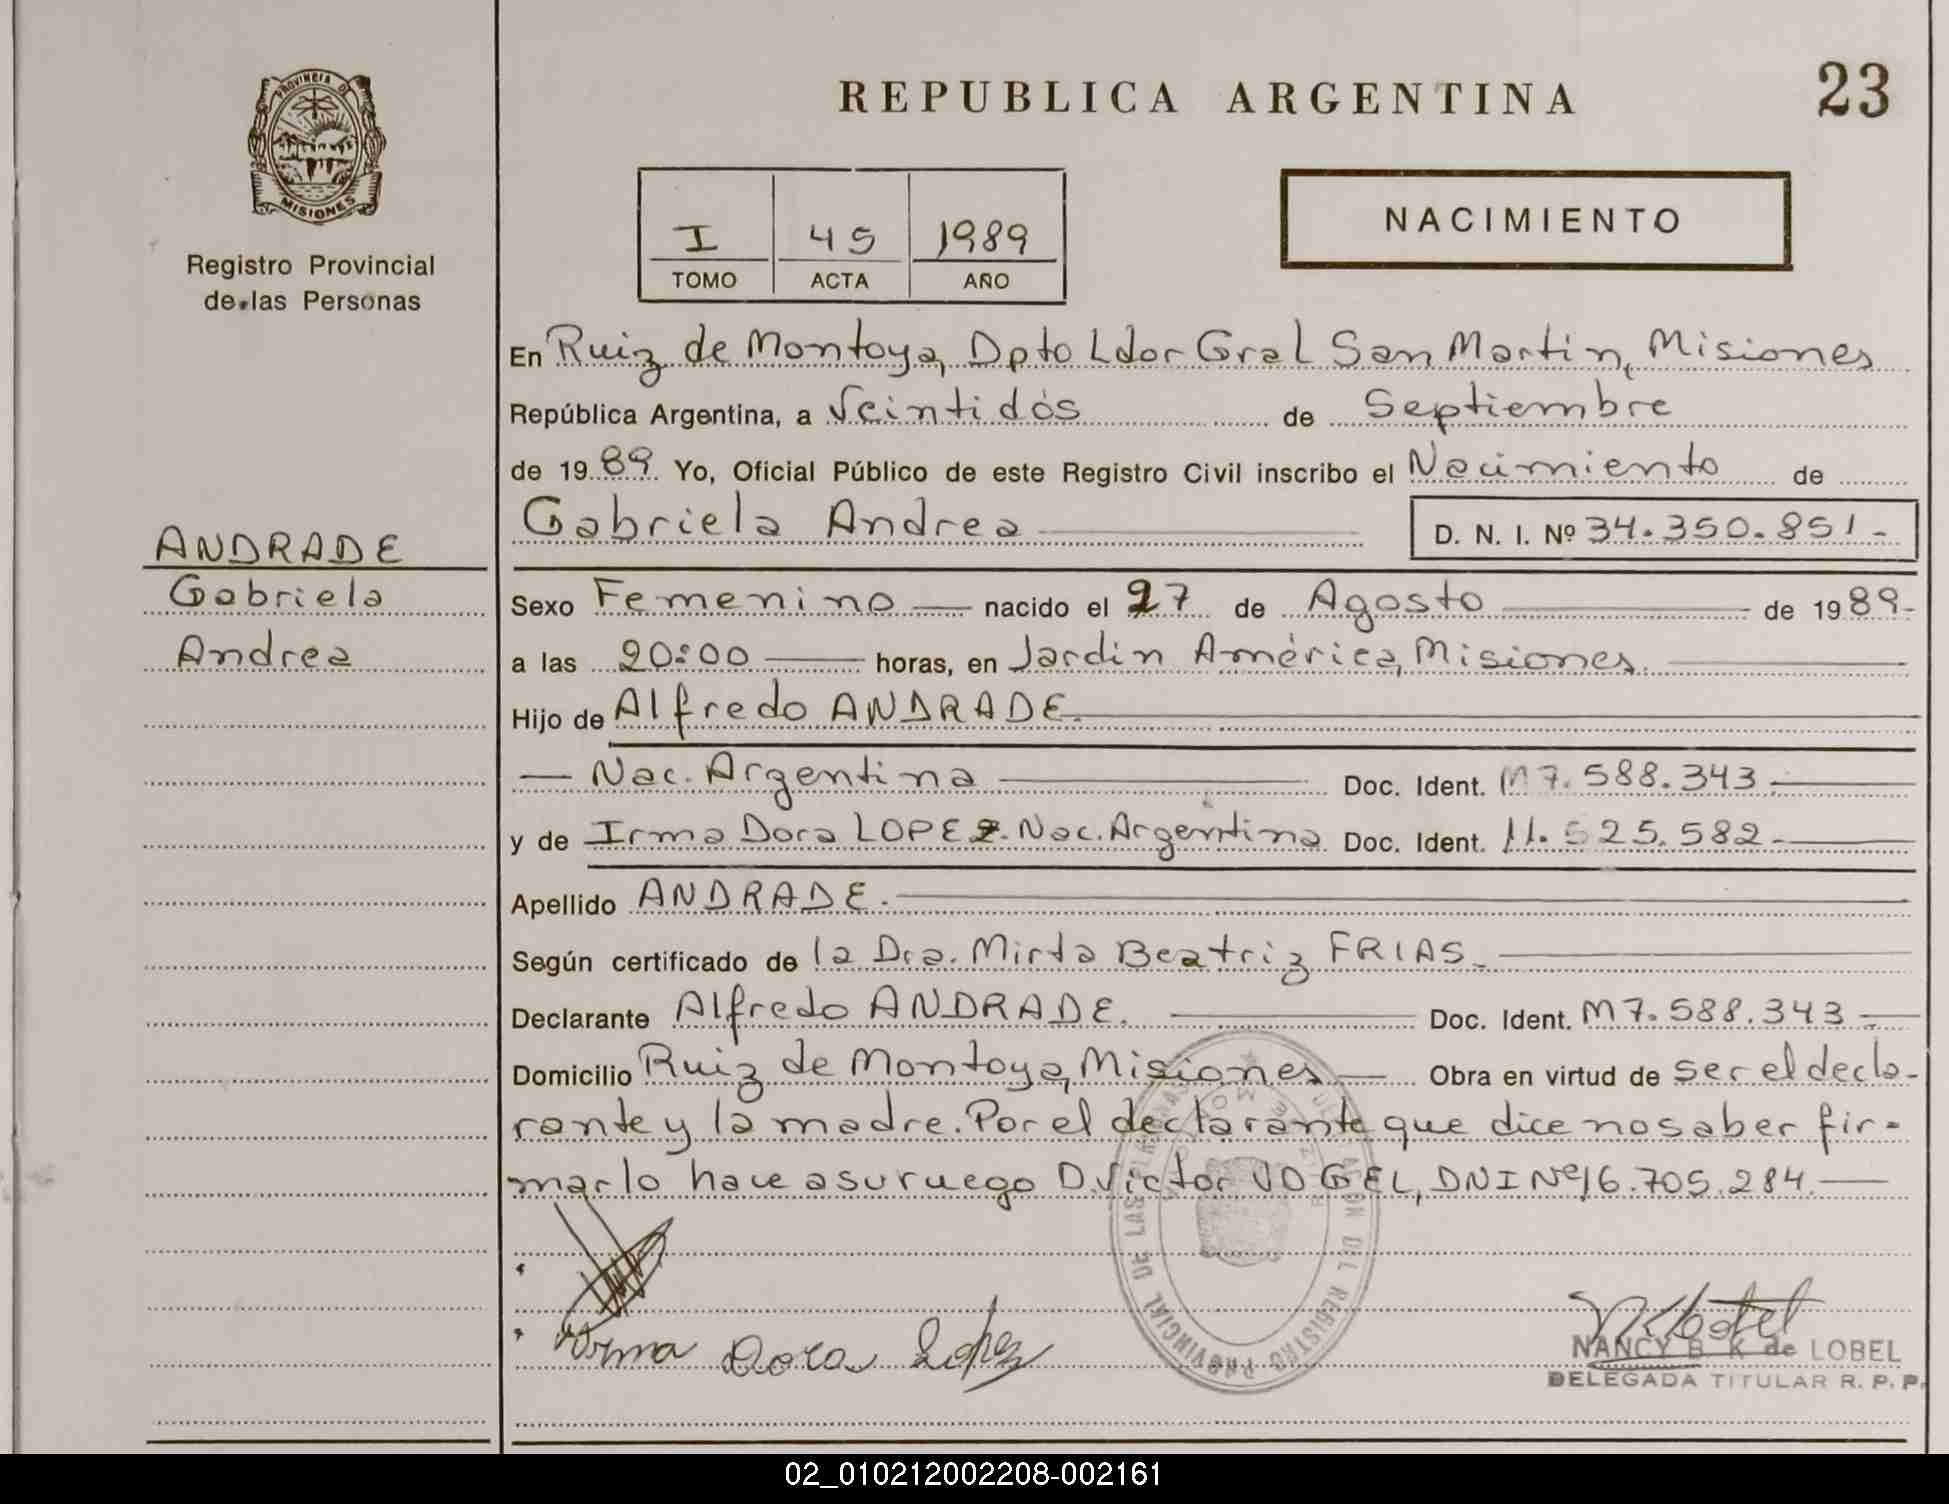 PROVINCIA DE
MISIONES
Registro Provincial
de las Personas
ANDRADE
Gabriela
Andrea
REPUBLICA ARGENTINA
23
I 45 1989
TOMO ACTA AÑO
NACIMIENTO
En Ruiz de Montoya, Dpto Ldor Gral San Martin, Misiones
República Argentina, a Veintidós de Septiembre
de 1989 Yo, Oficial Público de este Registro Civil inscribo el Nacimiento de
Gabriela Andrea D. N. I. Nº 34.350.851.-
Sexo Femenino nacido el 27 de Agosto de 1989-
a las 20:00 horas, en Jardin América, Misiones.
Hijo de Alfredo ANDRADE.
Nac. Argentina Doc. Ident. M7.588.343.-
y de Irma Dora LOPEZ. Nac. Argentina Doc. Ident. 11.525.582.-
Apellido ANDRADE.
Según certificado de la Dra. Mirta Beatriz FRIAS.
Declarante Alfredo ANDRADE. Doc. Ident. M7.588.343.-
Domicilio Ruiz de Montoya, Misiones Obra en virtud de ser el decla-
rante y la madre. Por el declarante que dice no saber fir-
mar lo hace a su ruego D. Victor VOGEL, DNI Nº 16.705.284.
Irma Dora Lopez
NANCY B. K. de LOBEL
DELEGADA TITULAR R. P. P.
02_010212002208-002161